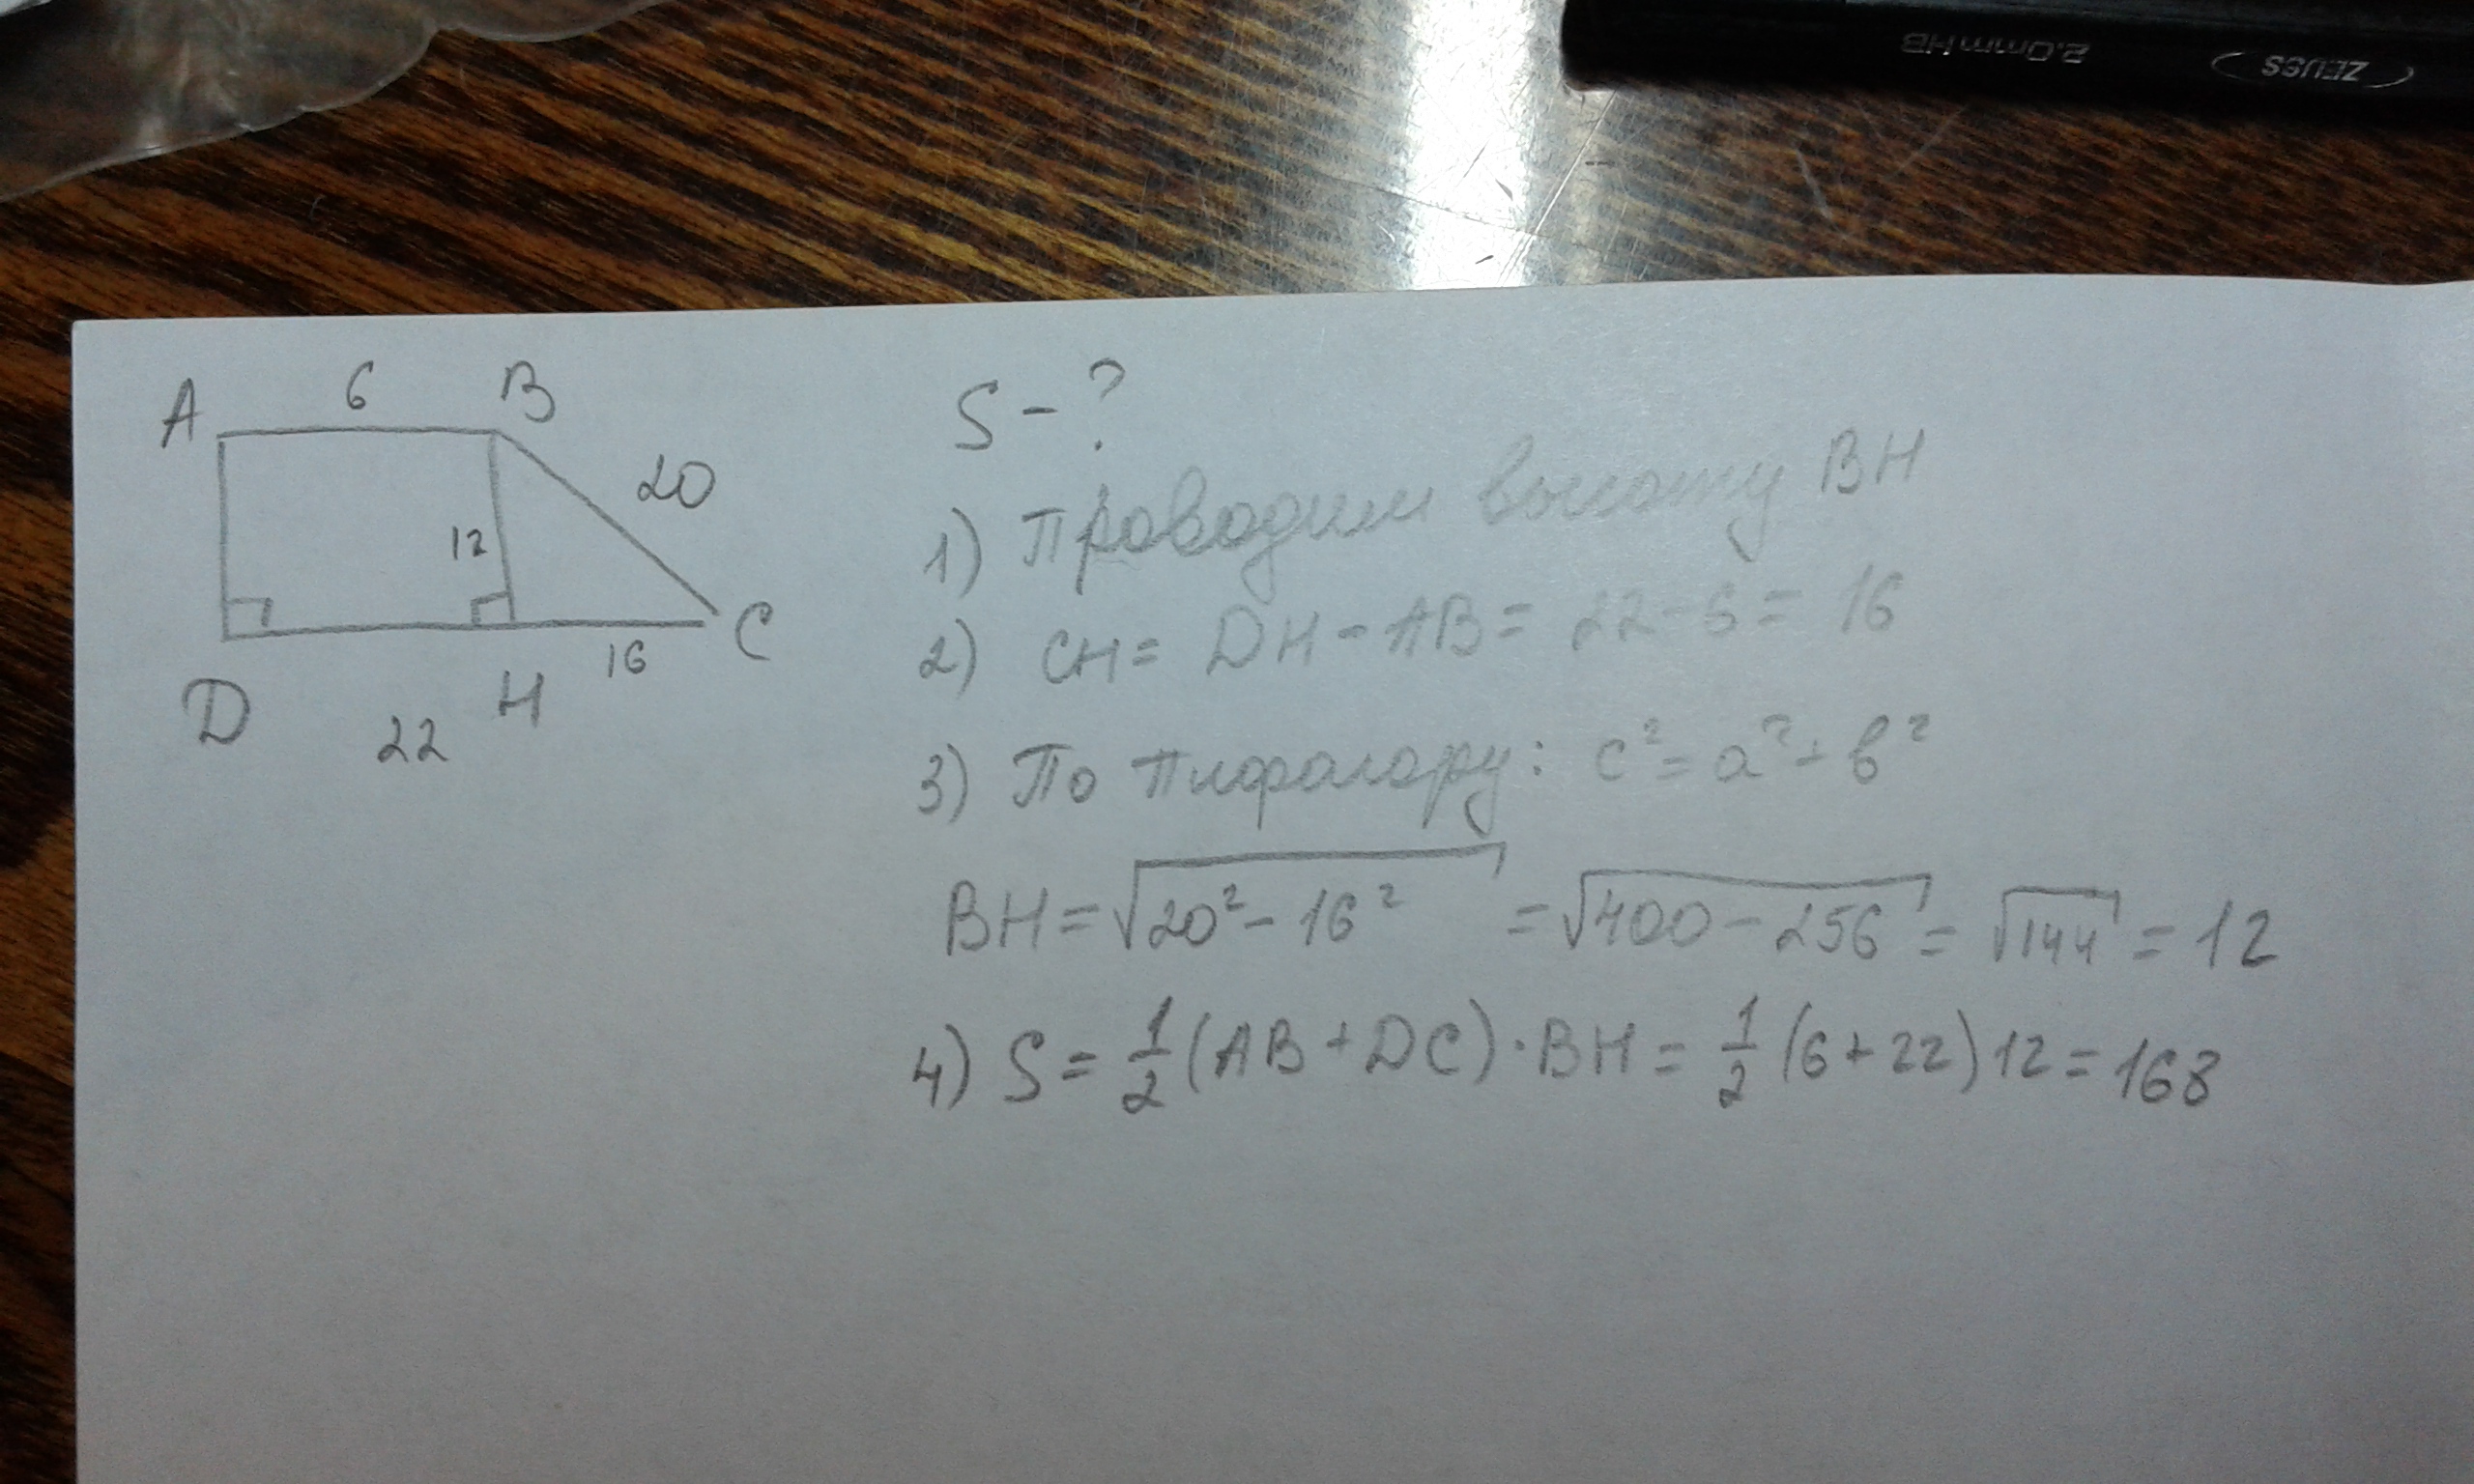 2.0mmHB
ZEUSS
A 6 B
20
12
C
16
D H
22
S - ?
1) Проводим высоту BH
2) CH = DH - AB = 22 - 6 = 16
3) По Пифагору: c² = a² + b²
BH = √20² - 16² = √400 - 256 = √144 = 12
4) S = 1/2 (AB + DC) · BH = 1/2 (6 + 22) 12 = 168